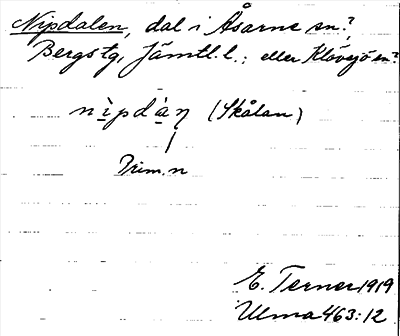 Nipdalen, dal i Åsarne sn?,
Bergs tg, Jämtl. l.; eller Klövsjö sn?
nìpdàn (Skålan)
Prim. n
E. Terner 1919
Ulma 463:12